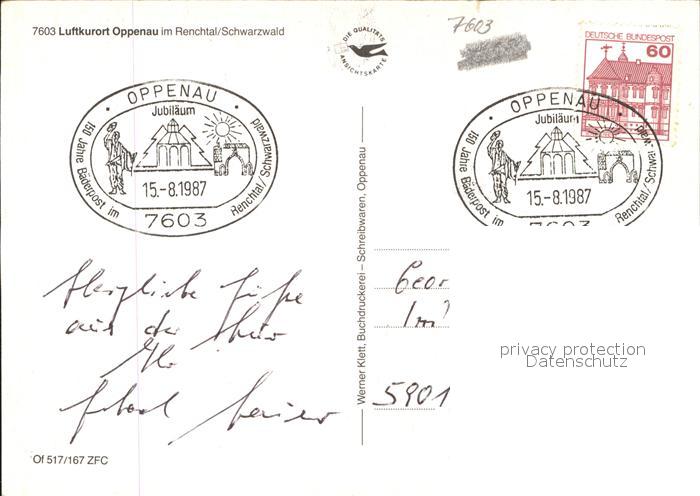 7603 Luftkurort Oppenau im Renchtal/Schwarzwald
DIE QUALITÄTS
ANSICHTSKARTE
7603
DEUTSCHE BUNDESPOST
60
OPPENAU
Jubiläum
150 Jahre Bäderpost im Renchtal/Schwarzwald
15.-8.1987
7603
OPPENAU
Jubiläum
150 Jahre Bäderpost im Renchtal/Schwarzwald
15.-8.1987
7603
Werner Klett, Buchdruckerei – Schreibwaren, Oppenau
Herzliche Grüße
aus der
Ihr
Geor
Im
5901
privacy protection
Datenschutz
Of 517/167 ZFC